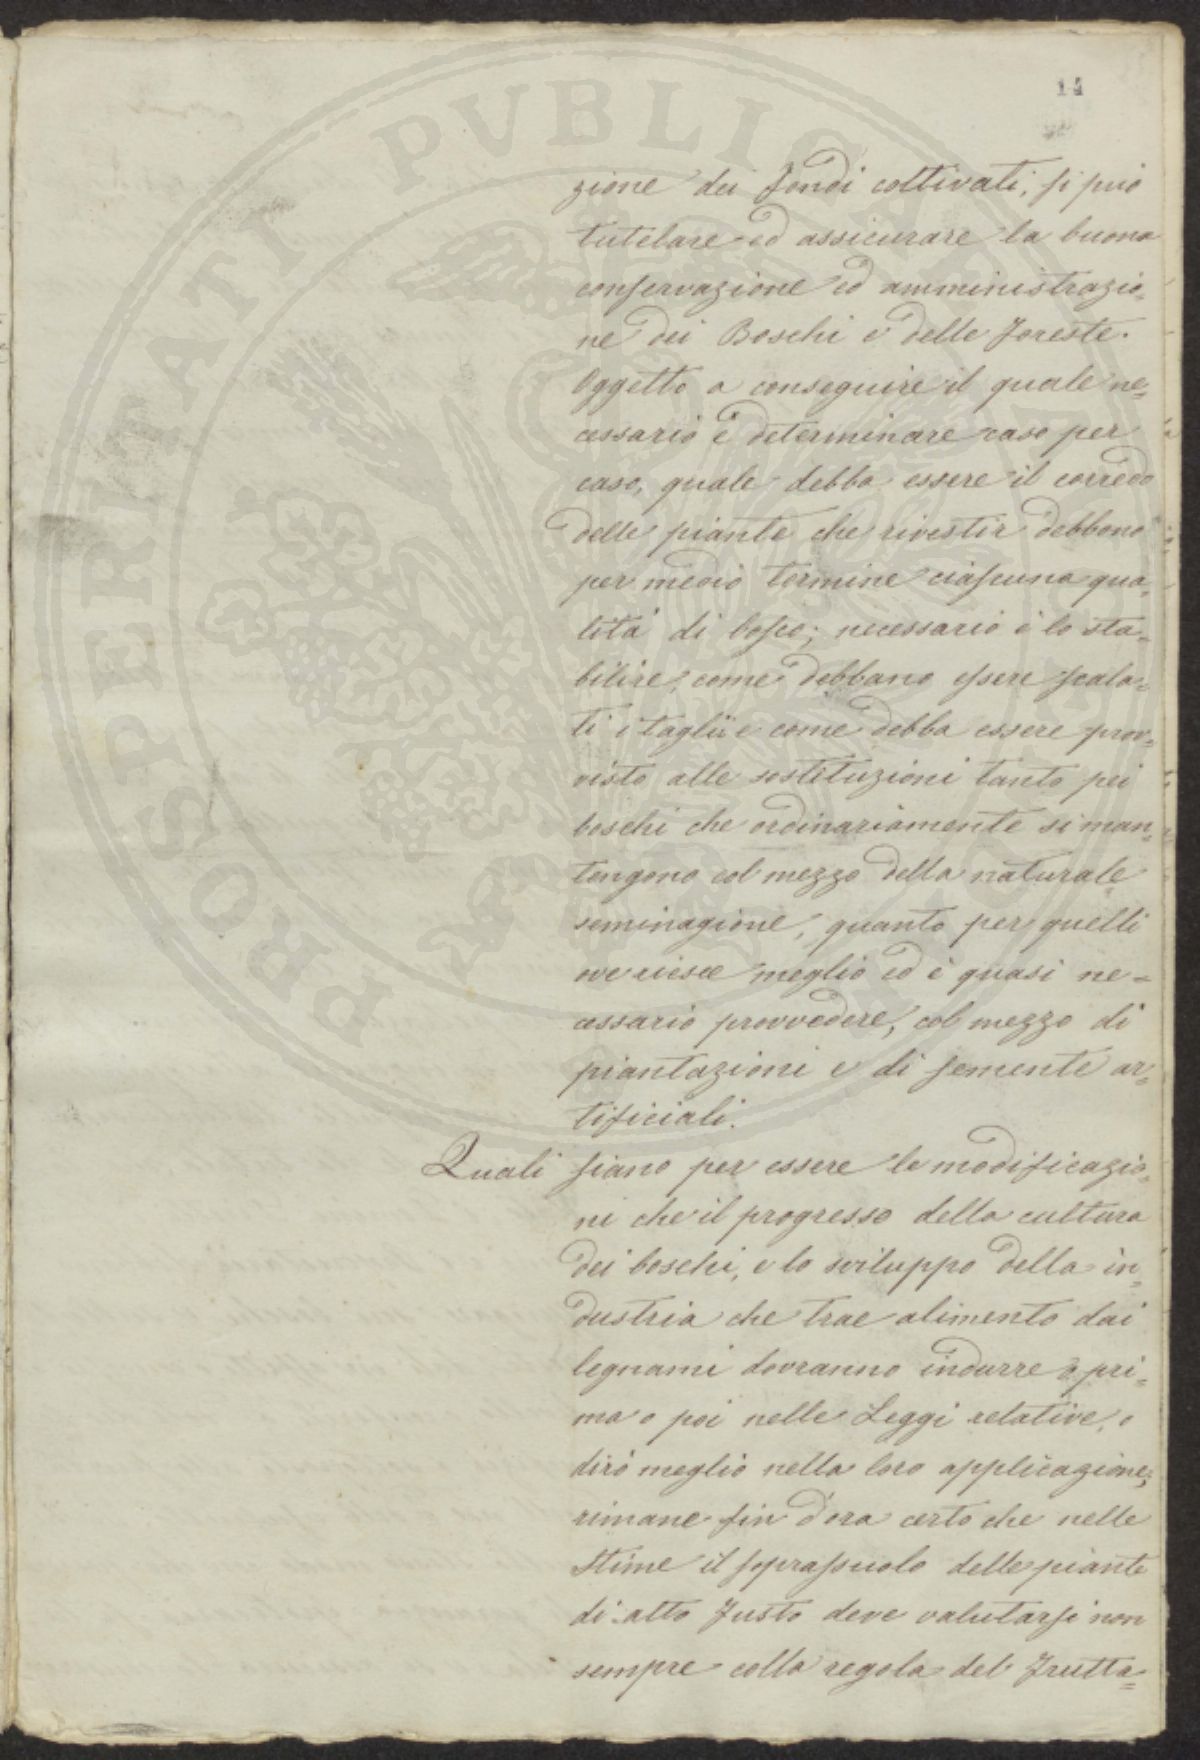 14
zione dei fondi coltivati, si può
tutelare ed assicurare la buona
conservazione ed amministrazio=
ne dei Boschi e delle foreste.
Oggetto a conseguire il quale ne=
cessario è determinare caso per
caso, quale debba essere il corredo
delle piante che rivestir debbono
per medio termine ciascuna qua=
lità di bosco; necessario è lo sta=
bilire, come debbano essere scala=
ti i taglii e come debba essere prov=
visto alle sostituzioni tanto pei
boschi che ordinariamente si man=
tengono col mezzo della naturale
seminagione, quanto per quelli
ove riesce meglio ed è quasi ne=
cessario provvedere, col mezzo di
piantazioni e di semente ar=
tificiali.
Quali siano per essere le modificazio=
ni che il progresso della cultura
dei boschi, e lo sviluppo della in=
dustria che trae alimento dai
legnami dovranno indurre o pri=
ma o poi nelle Leggi relative, o
dirò meglio nella loro applicazione;
rimane fin d'ora certo che nelle
Stime il soprassuolo delle piante
di alto fusto deve valutarsi non
sempre colla regola del frutta=
PROSPERITATI PVBLICAE